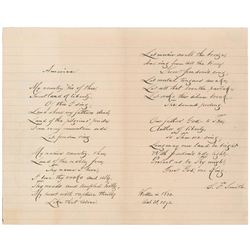 America
My country, 'tis of thee
Sweet land of liberty,
Of thee I sing
Land where my fathers died,
Land of the pilgrims' pride
From every mountain side
Let freedom ring
My native country, thee
Land of the noble, free
Thy name I love;
I love thy rocks and rills,
Thy woods and templed hills,
My heart with rapture thrills
Like that above
Let music swell the breeze
And ring from all the trees
Sweet freedom's song
Let mortal tongues awake
Let all that breathe partake
Let rocks their silence break
The sound prolong
Our fathers' God, to Thee
Author of liberty,
To Thee we sing
Long may our land be bright
With freedom's holy light
Protect us by Thy might
Great God, our King
S. F. Smith
Written in 1832